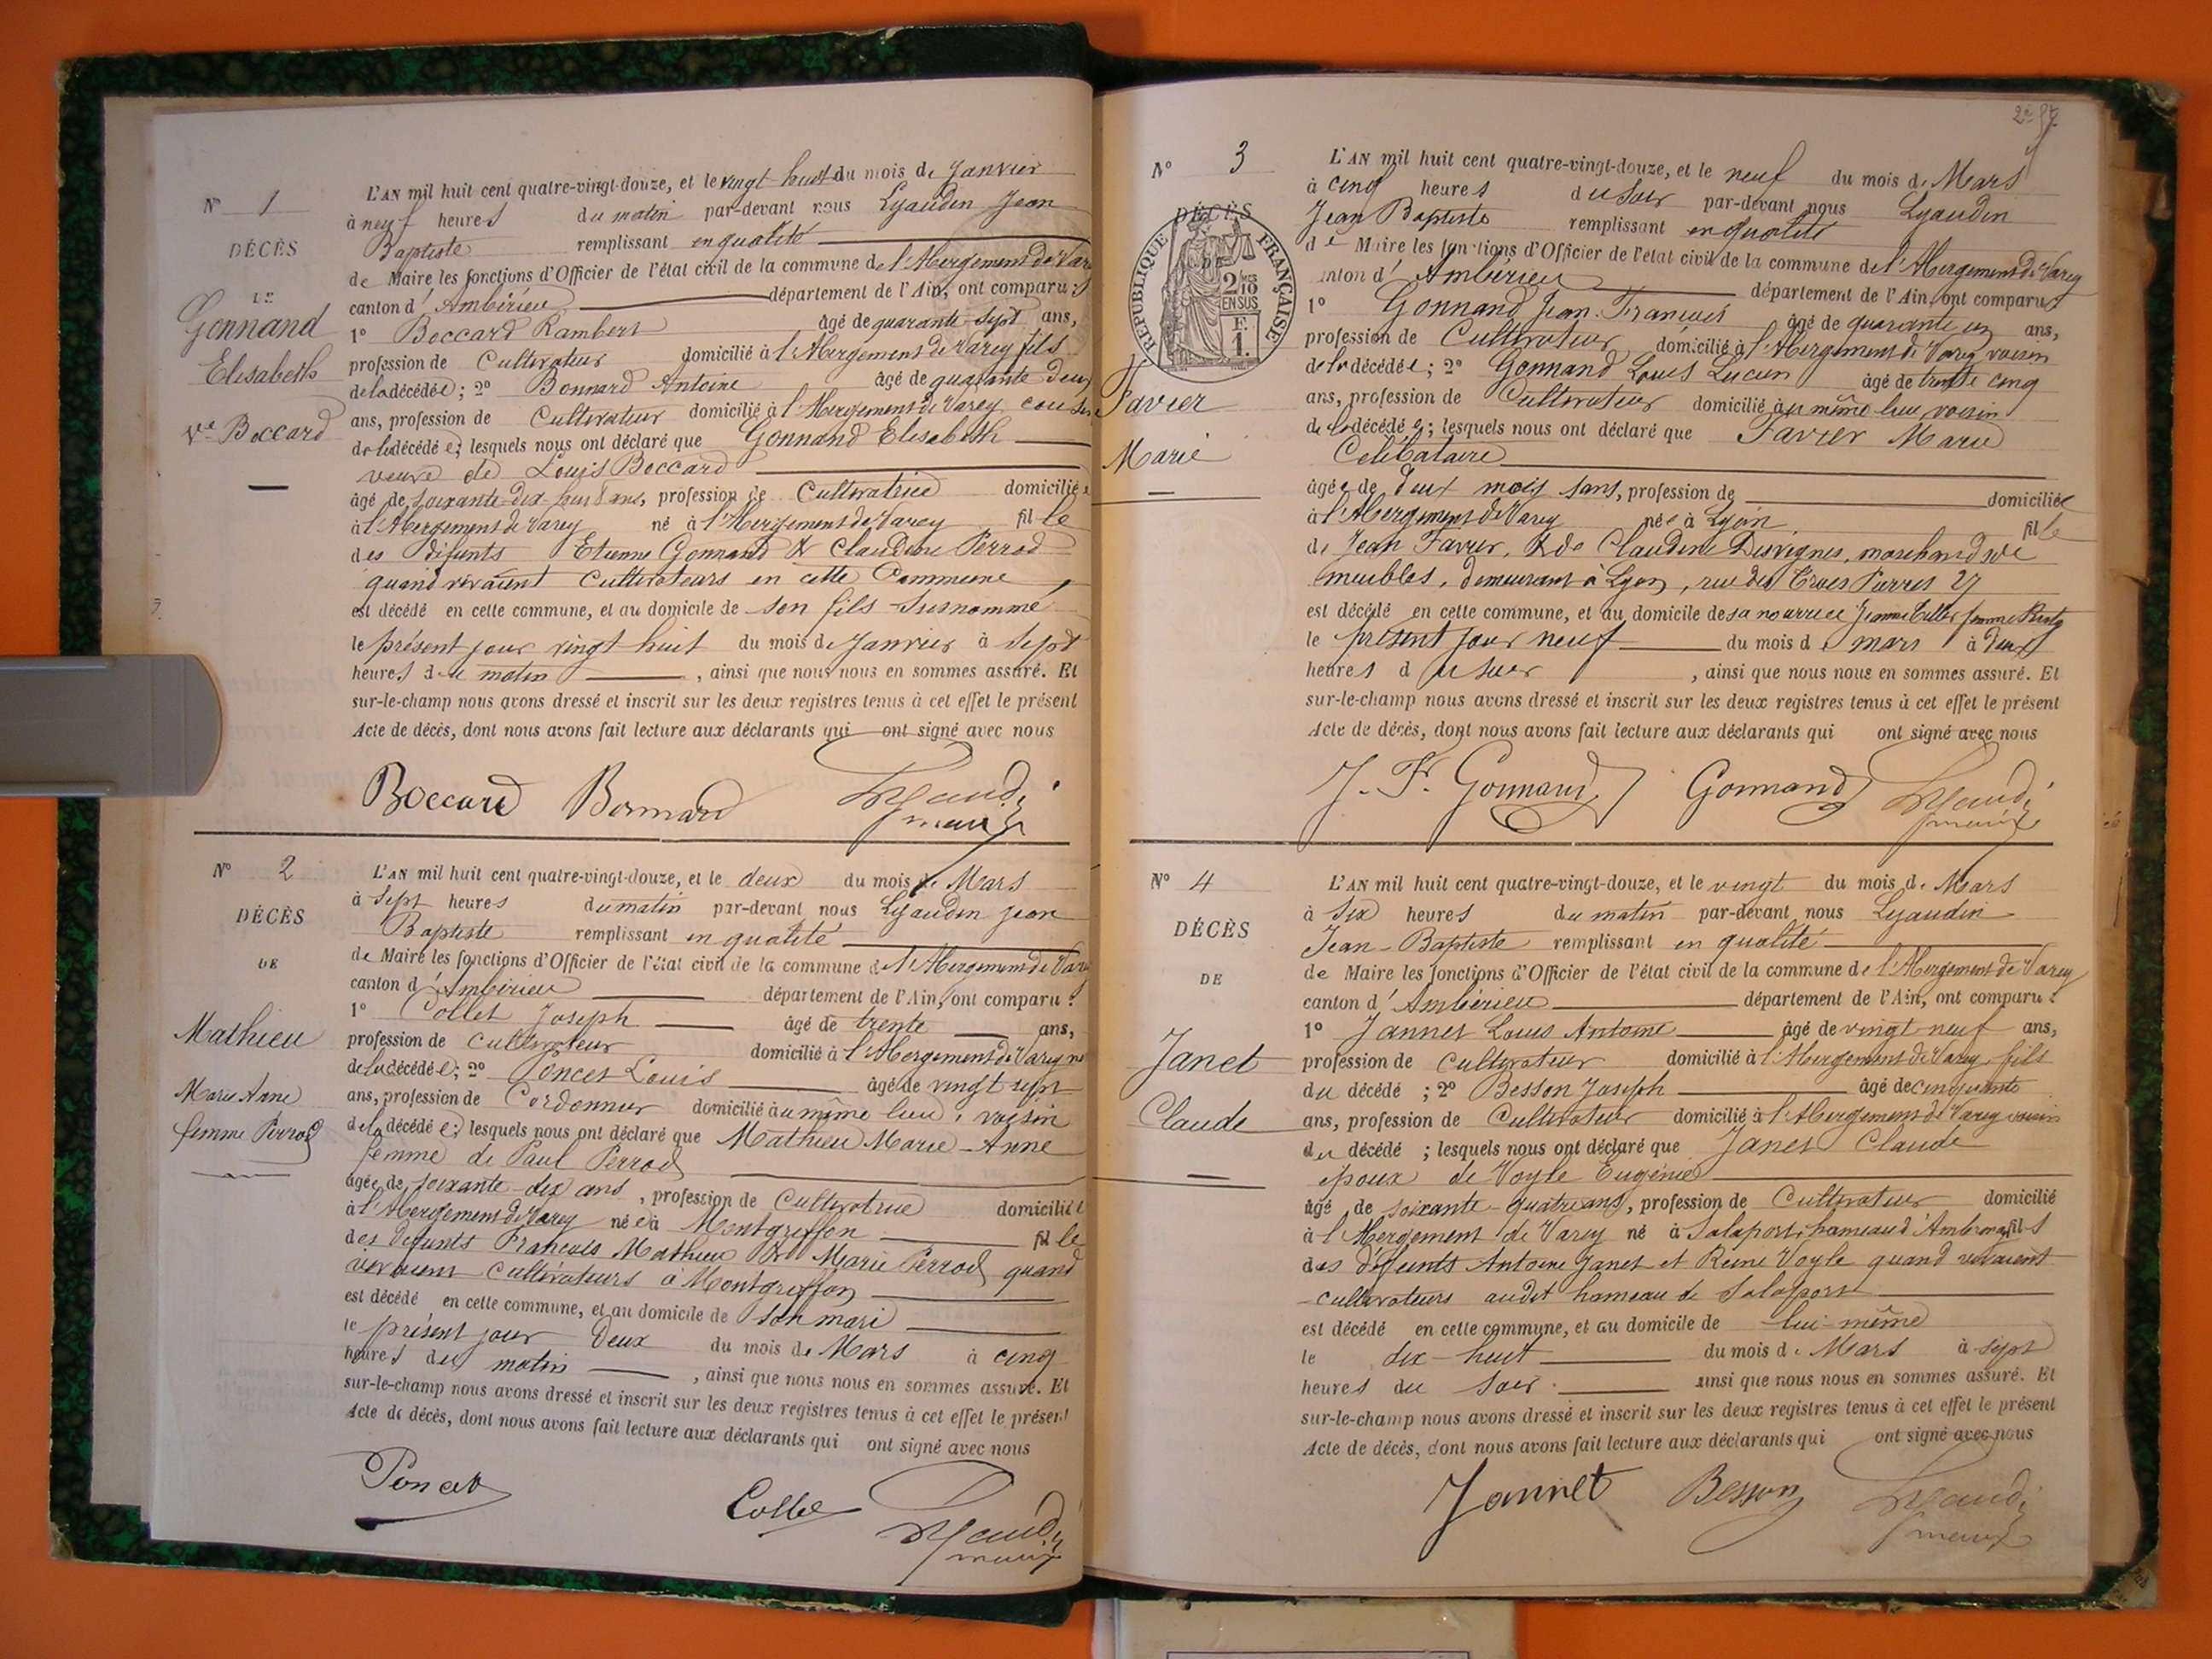 N° 1
DÉCÈS
DE
Gonnand
Elisabeth
Ve Boccard
L'AN mil huit cent quatre-vingt-douze, et le vingt huit du mois de Janvier
à neuf heures du matin par-devant nous Lyaudin Jean
Baptiste remplissant en qualité
de Maire les fonctions d'Officier de l'état civil de la commune de l'Abergement de Varey
canton d'Ambérieu département de l'Ain, ont comparu :
1° Boccard Rambert âgé de quarante sept ans,
profession de Cultivateur domicilié à l'Abergement de Varey fils
de la décédée ; 2° Bonnard Antoine âgé de quarante deux
ans, profession de Cultivateur domicilié à l'Abergement de Varey cousin
de la décédée ; lesquels nous ont déclaré que Gonnand Elisabeth
veuve de Louis Boccard
âgé de soixante dix huit ans, profession de Cultivatrice domiciliée
à l'Abergement de Varey né à l'Abergement de Varey fille
des défunts Etienne Gonnand & Claudine Perrod
quand vivaient Cultivateurs en cette Commune
est décédé en cette commune, et au domicile de son fils susnommé
le présent jour vingt huit du mois de Janvier à sept
heures du matin, ainsi que nous nous en sommes assuré. Et
sur-le-champ nous avons dressé et inscrit sur les deux registres tenus à cet effet le présent
Acte de décès, dont nous avons fait lecture aux déclarants qui ont signé avec nous
Boccard Bonnard Lyaudin
maire
N° 2
DÉCÈS
DE
Mathieu
Marie Anne
femme Perrod
L'AN mil huit cent quatre-vingt-douze, et le deux du mois de Mars
à sept heures du matin par-devant nous Lyaudin Jean
Baptiste remplissant en qualité
de Maire les fonctions d'Officier de l'état civil de la commune de l'Abergement de Varey
canton d'Ambérieu département de l'Ain, ont comparu :
1° Collet Joseph âgé de trente ans,
profession de Cultivateur domicilié à l'Abergement de Varey
de la décédée ; 2° Poncet Louis âgé de vingt sept
ans, profession de Cordonnier domicilié au même lieu, voisin
de la décédée ; lesquels nous ont déclaré que Mathieu Marie-Anne
femme de Paul Perrod
âgée de soixante-dix ans, profession de Cultivatrice domiciliée
à l'Abergement de Varey née à Montgriffon fille
des défunts François Mathieu & Marie Perrod quand
vivaient Cultivateurs à Montgriffon
est décédé en cette commune, et au domicile de son mari
le présent jour deux du mois de Mars à cinq
heures du matin, ainsi que nous nous en sommes assuré. Et
sur-le-champ nous avons dressé et inscrit sur les deux registres tenus à cet effet le présent
Acte de décès, dont nous avons fait lecture aux déclarants qui ont signé avec nous
Poncet Collet Lyaudin
maire
N° 3
DÉCÈS
RÉPUBLIQUE FRANÇAISE
2/10 EN SUS
F. 1.
Favier
Marie
L'AN mil huit cent quatre-vingt-douze, et le neuf du mois de Mars
à cinq heures du soir par-devant nous Lyaudin
Jean Baptiste remplissant en qualité
de Maire les fonctions d'Officier de l'état civil de la commune de l'Abergement de Varey
canton d'Ambérieu département de l'Ain, ont comparu :
1° Gonnand Jean-François âgé de quarante un ans,
profession de Cultivateur domicilié à l'Abergement de Varey voisin
de la décédée ; 2° Gonnand Louis Lucien âgé de trente cinq
ans, profession de Cultivateur domicilié au même lieu voisin
de la décédée ; lesquels nous ont déclaré que Favier Marie
Célibataire
âgée de deux mois sans, profession de domiciliée
à l'Abergement de Varey née à Lyon fille
de Jean Favier, & de Claudine Desvignes, marchands de
meubles, demeurant à Lyon, rue des Trois Pierres 27
est décédé en cette commune, et au domicile de sa nourrice Jeanne femme
le présent jour neuf du mois de mars à deux
heures du soir, ainsi que nous nous en sommes assuré. Et
sur-le-champ nous avons dressé et inscrit sur les deux registres tenus à cet effet le présent
Acte de décès, dont nous avons fait lecture aux déclarants qui ont signé avec nous
J. F. Gonnand Gonnand Lyaudin
maire
N° 4
DÉCÈS
DE
Janet
Claude
L'AN mil huit cent quatre-vingt-douze, et le vingt du mois de Mars
à six heures du matin par-devant nous Lyaudin
Jean-Baptiste remplissant en qualité
de Maire les fonctions d'Officier de l'état civil de la commune de l'Abergement de Varey
canton d'Ambérieu département de l'Ain, ont comparu :
1° Jannet Louis Antoine âgé de vingt-neuf ans,
profession de Cultivateur domicilié à l'Abergement de Varey fils
du décédé ; 2° Besson Joseph âgé de cinquante
ans, profession de Cultivateur domicilié à l'Abergement de Varey voisin
du décédé ; lesquels nous ont déclaré que Janet Claude
époux de Voyle Eugénie
âgé de soixante-quatre ans, profession de Cultivateur domicilié
à l'Abergement de Varey né à Salaport, hameau d'Ambronay fils
des défunts Antoine Janet et Reine Voyle quand vivaient
cultivateurs audit hameau de Salaport
est décédé en cette commune, et au domicile de lui-même
le dix-huit du mois de Mars à sept
heures du soir. ainsi que nous nous en sommes assuré. Et
sur-le-champ nous avons dressé et inscrit sur les deux registres tenus à cet effet le présent
Acte de décès, dont nous avons fait lecture aux déclarants qui ont signé avec nous
Jannet Besson Lyaudin
maire